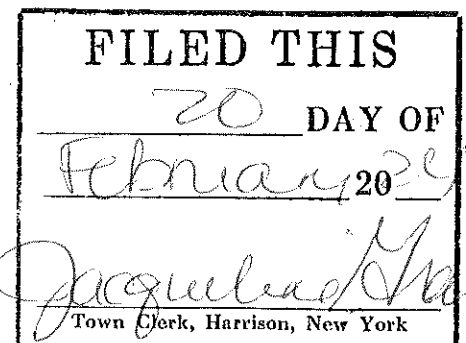 FILED THIS
20 DAY OF
February 20
Jacqueline
Town Clerk, Harrison, New York